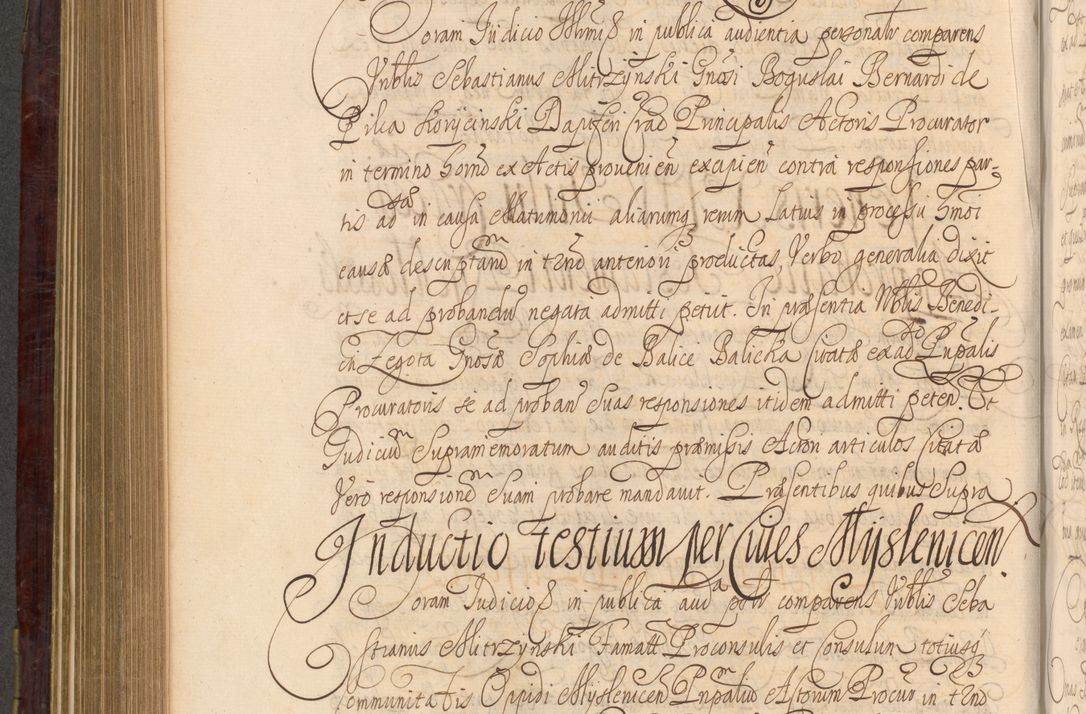 Coram Judicio Illmi & in publica audientia personalr comparens
Nblis Sebastianus Mitrzynski Gnosi Boguslai Bernardi de
Pilca Korycinski Dapiferi Crad Principalis Actoris Procurator
in termino horno ex Actis provenien excipien contra responsiones par-
tis adae in causa Matrimonii aliarumq rerum Latius in processu hmoi
causae descriptarum in tno anteriori productas, Verbo generalia dixit
et se ad probandu negata admitti petiit. In praesentia Nblis Benedi-
cti Zegota Gnosae Sophiae de Balice Balicka Citatae ex ado Pnpalis
Procuratoris se ad proban suas responsiones itidem admitti peten. Et
Judicium Supramemoratum auditis praemissis Acton articulos Citatae
Vero responsionem suam probare mandavit. Praesentibus quibus Supra
Inductio testium per Cives Myslenicen
Coram Judicio & in publica auda pstr comparens Nblis Seba
stianus Mitrzynski Famatt Proconsulis et Consulun totiusq
Communitatis Oppidi Myslenicen Pnpaliu Actorum Procur in tno